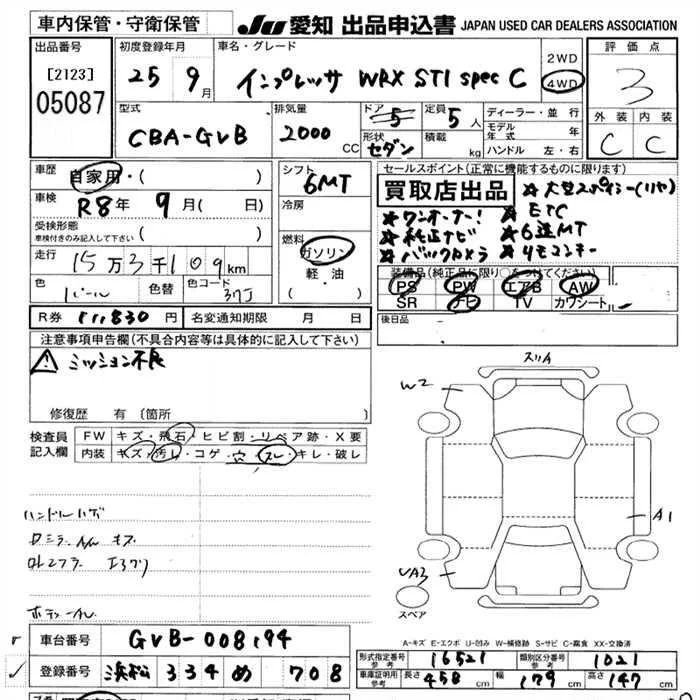 車内保管・守衛保管
JU 愛知 出品申込書 JAPAN USED CAR DEALERS ASSOCIATION
出品番号
[2123]
05087
初度登録年月
25 9月
車名・グレード
インプレッサ WRX STI spec C
2WD
4WD
評価点
3
外装 内装
C C
型式
CBA-GVB
排気量
2000 CC
ドア
5
定員
5人
形状
セダン
積載
kg
ディーラー・並行
モデル年式 年
ハンドル 左・右
車歴
自家用・( )
車検
R8年 9月( 日)
受検形態
車検付きのみ記入して下さい( )
走行
15万3千109km
色
パール
色替
色コード
37J
シフト
6MT
冷房
燃料
ガソリン
軽・油
セールスポイント(正常に機能するものに限ります)
買取店出品
★大型スポイラー(リヤ)
★ワンオーナー! ★ETC
★純正ナビ ★6速MT
★バックカメラ ★リモコンキー
装備品(純正品に限り○をつけてください)
PS PW エアB AW
SR TV カワシート
R券 11,830円
名変通知期限 月 日
後日品
注意事項申告欄(不具合内容等は具体的に記入して下さい)
ミッション不良
修復歴 有 [箇所
検査員記入欄
FW キズ・飛石・ヒビ割・リペア跡・X要
内装 キズ・汚レ・コゲ・穴・スレ・キレ・破レ
スリA
W2
A1
UA3
スペア
ハンドルハゲ
A-キズ E-エクボ U-凹み W-補修跡 S-サビ C-腐食 XX-交換済
車台番号
GVB-008194
登録番号
浜松 334 め 708
形式指定番号
参考
16521
類別区分番号
参考
1021
車庫証明用
参考
長さ 458cm 幅 179cm 高さ 147cm